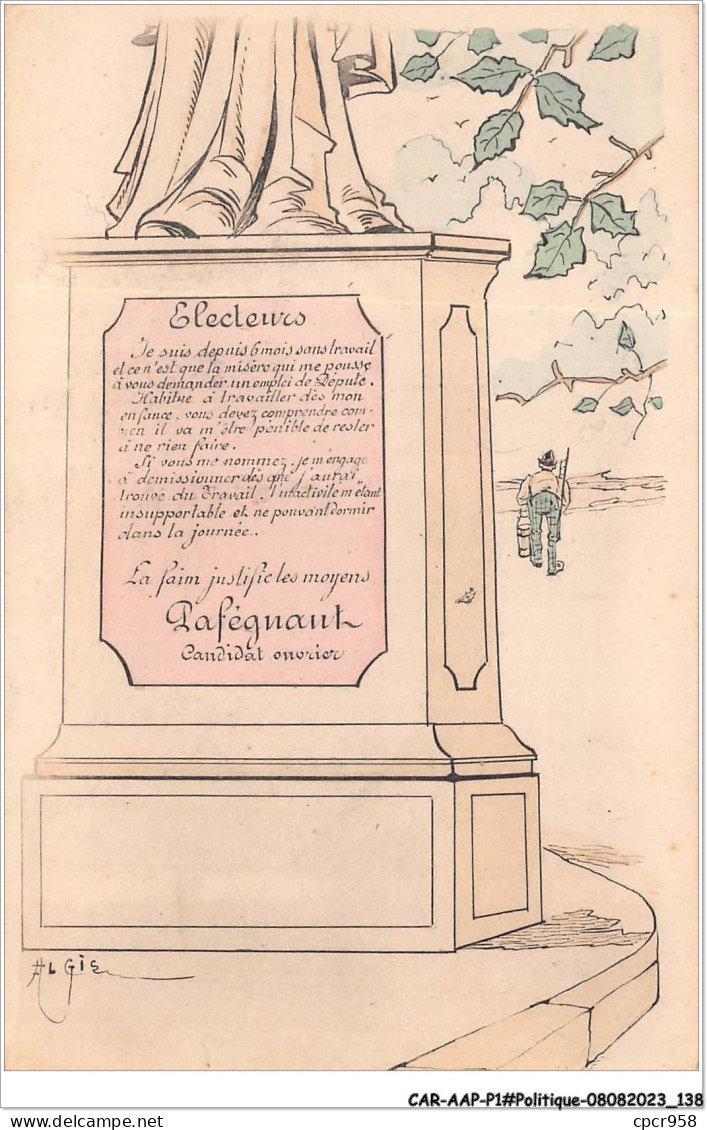 Electeurs
Je suis depuis 6 mois sans travail
et ce n'est que la misère qui me pousse
à vous demander un emploi de Député.
Habitué à travailler dès mon
enfance, vous devez comprendre com-
bien il va m'être pénible de rester
à ne rien faire.
Si vous me nommez, je m'engage
à démissionner dès que j'aurai
trouvé du Travail, l'inactivité m'étant
insupportable et ne pouvant dormir
dans la journée..
La faim justifie les moyens
Pafégnant
Candidat ouvrier
AL GIE
CAR-AAP-P1#Politique-08082023_138
www.delcampe.net
cpcr958